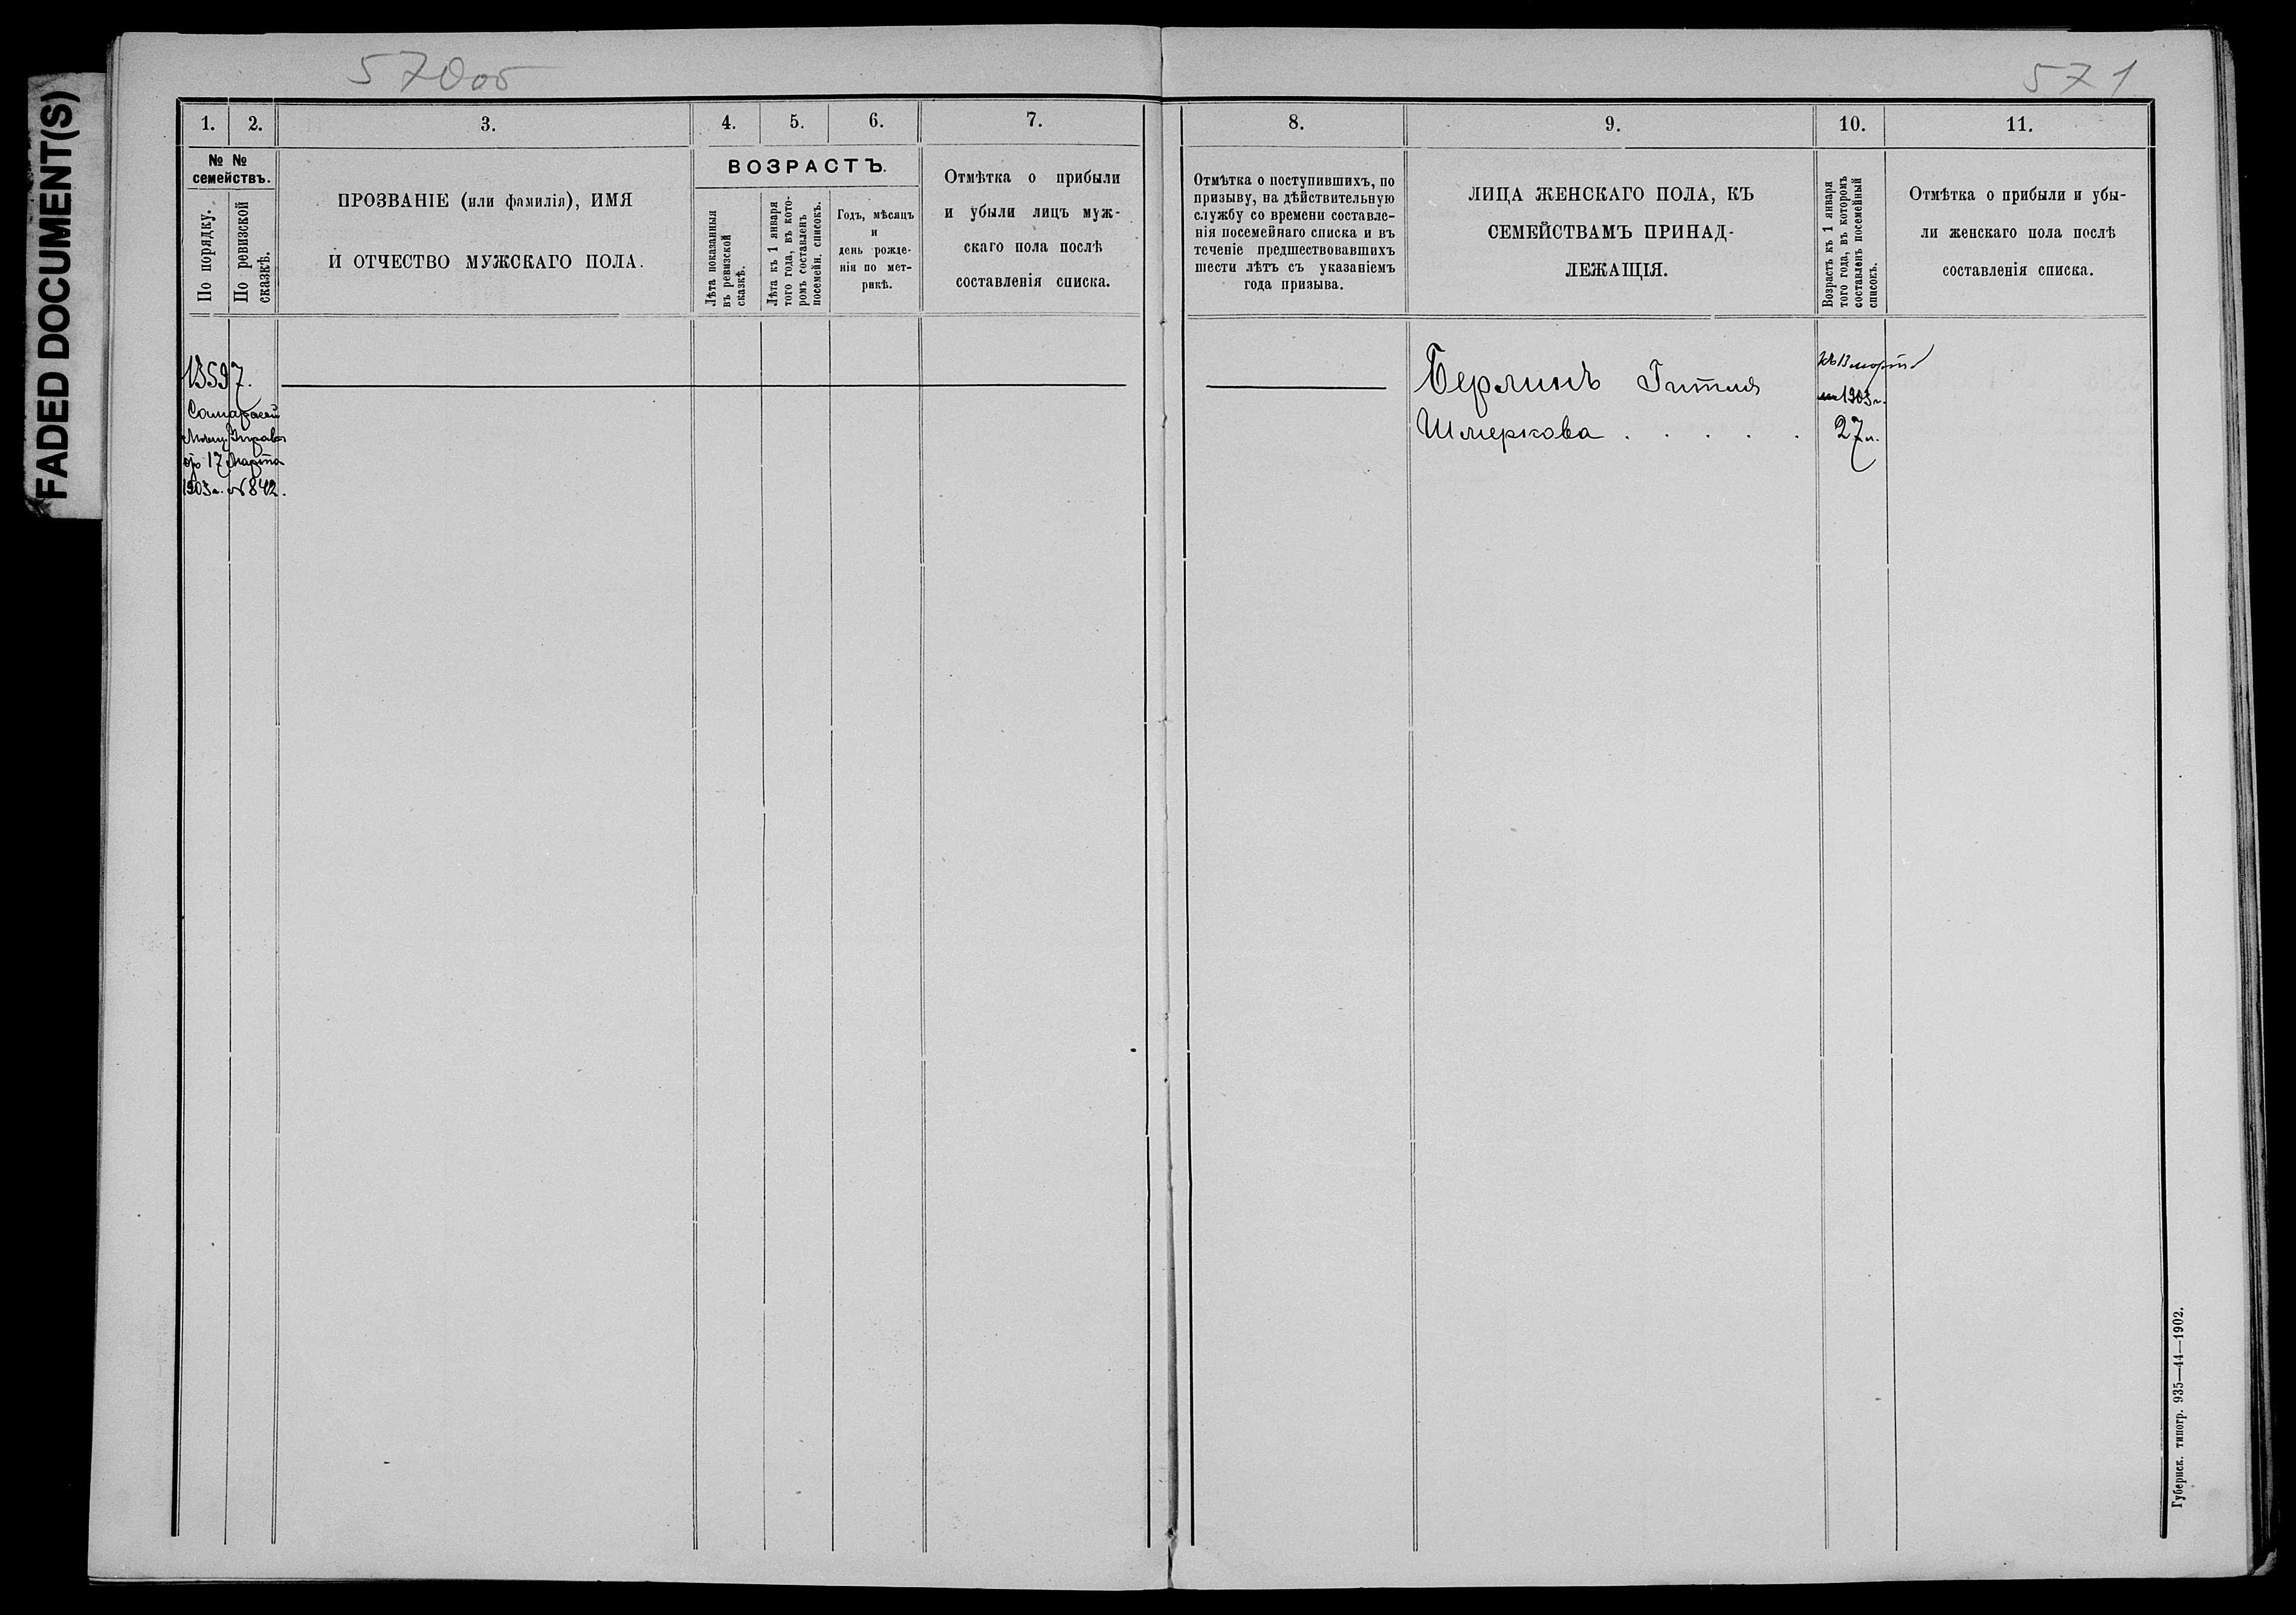 FADED DOCUMENT(S)
570об
571
1. 2. 3. 4. 5. 6. 7.
№ №
семействъ.
По порядку.
По ревизской
сказкѣ.
ПРОЗВАНІЕ (или фамилія), ИМЯ
И ОТЧЕСТВО МУЖСКАГО ПОЛА.
ВОЗРАСТЪ.
Лѣта показанныя
въ ревизской
сказкѣ.
Лѣта къ 1 января
того года, въ кото-
ромъ составленъ
посемейн. списокъ.
Годъ, мѣсяцъ
и
день рожде-
нія по мет-
рикѣ.
Отмѣтка о прибыли
и убыли лицъ муж-
скаго пола послѣ
составленія списка.
13597.
Мѣщ. Управа
17 Марта
1903 г. № 842.
8. 9. 10. 11.
Отмѣтка о поступившихъ, по
призыву, на дѣйствительную
службу со времени составле-
нія посемейнаго списка и въ
теченіе предшествовавшихъ
шести лѣтъ съ указаніемъ
года призыва.
ЛИЦА ЖЕНСКАГО ПОЛА, КЪ
СЕМЕЙСТВАМЪ ПРИНАД-
ЛЕЖАЩІЯ.
Возрастъ къ 1 января
того года, въ которомъ
составленъ посемейный
списокъ.
Отмѣтка о прибыли и убы-
ли женскаго пола послѣ
составленія списка.
Берлинъ Гитля
Шмеркова . . . . .
1903 г.
27 л.
Губернск. типогр. 935—44—1902.